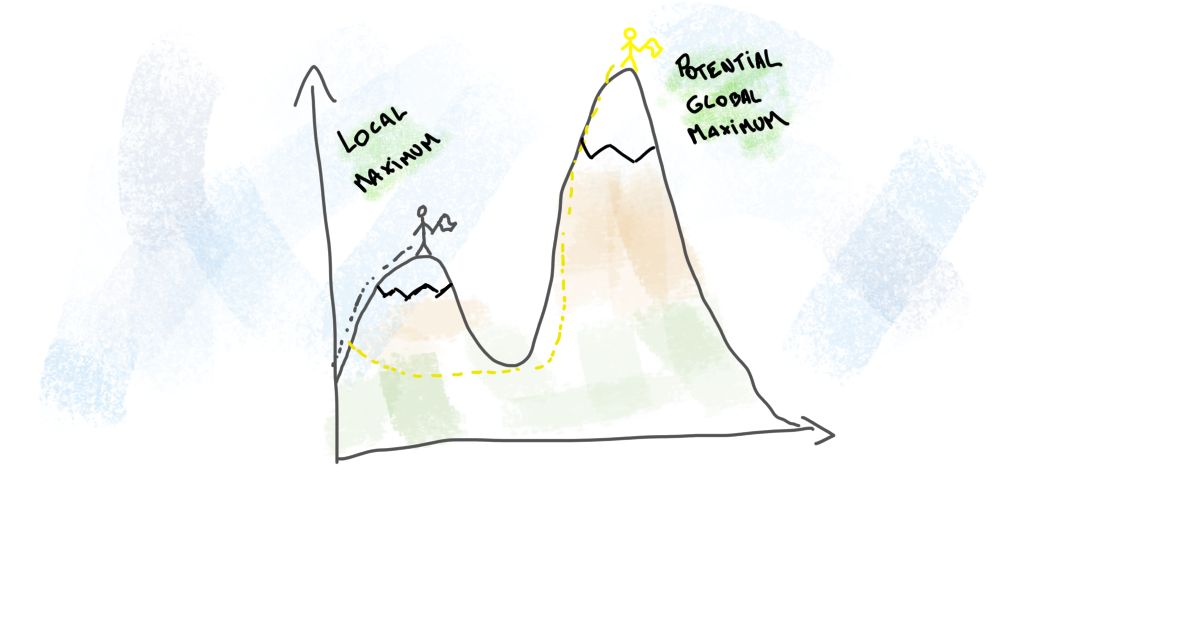 LOCAL
MAXIMUM
POTENTIAL
GLOBAL
MAXIMUM